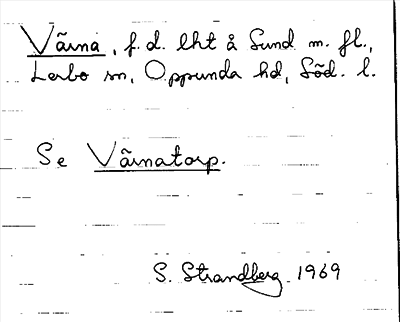 Värna, f. d. lht å Sund m. fl.,
Lerbo sn, Oppunda hd, Söd. l.
Se Värnatorp.
S. Strandberg 1969